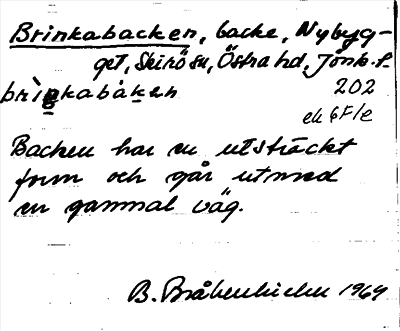 Brinkabacken, backe, Nybyg-
get, Skirö sn, Östra hd, Jönk. l.
brìŋkabàken 202
ek 6F1e
Backen har en utsträckt
form och går utmed
en gammal väg.
B. Bråkenhielm 1969